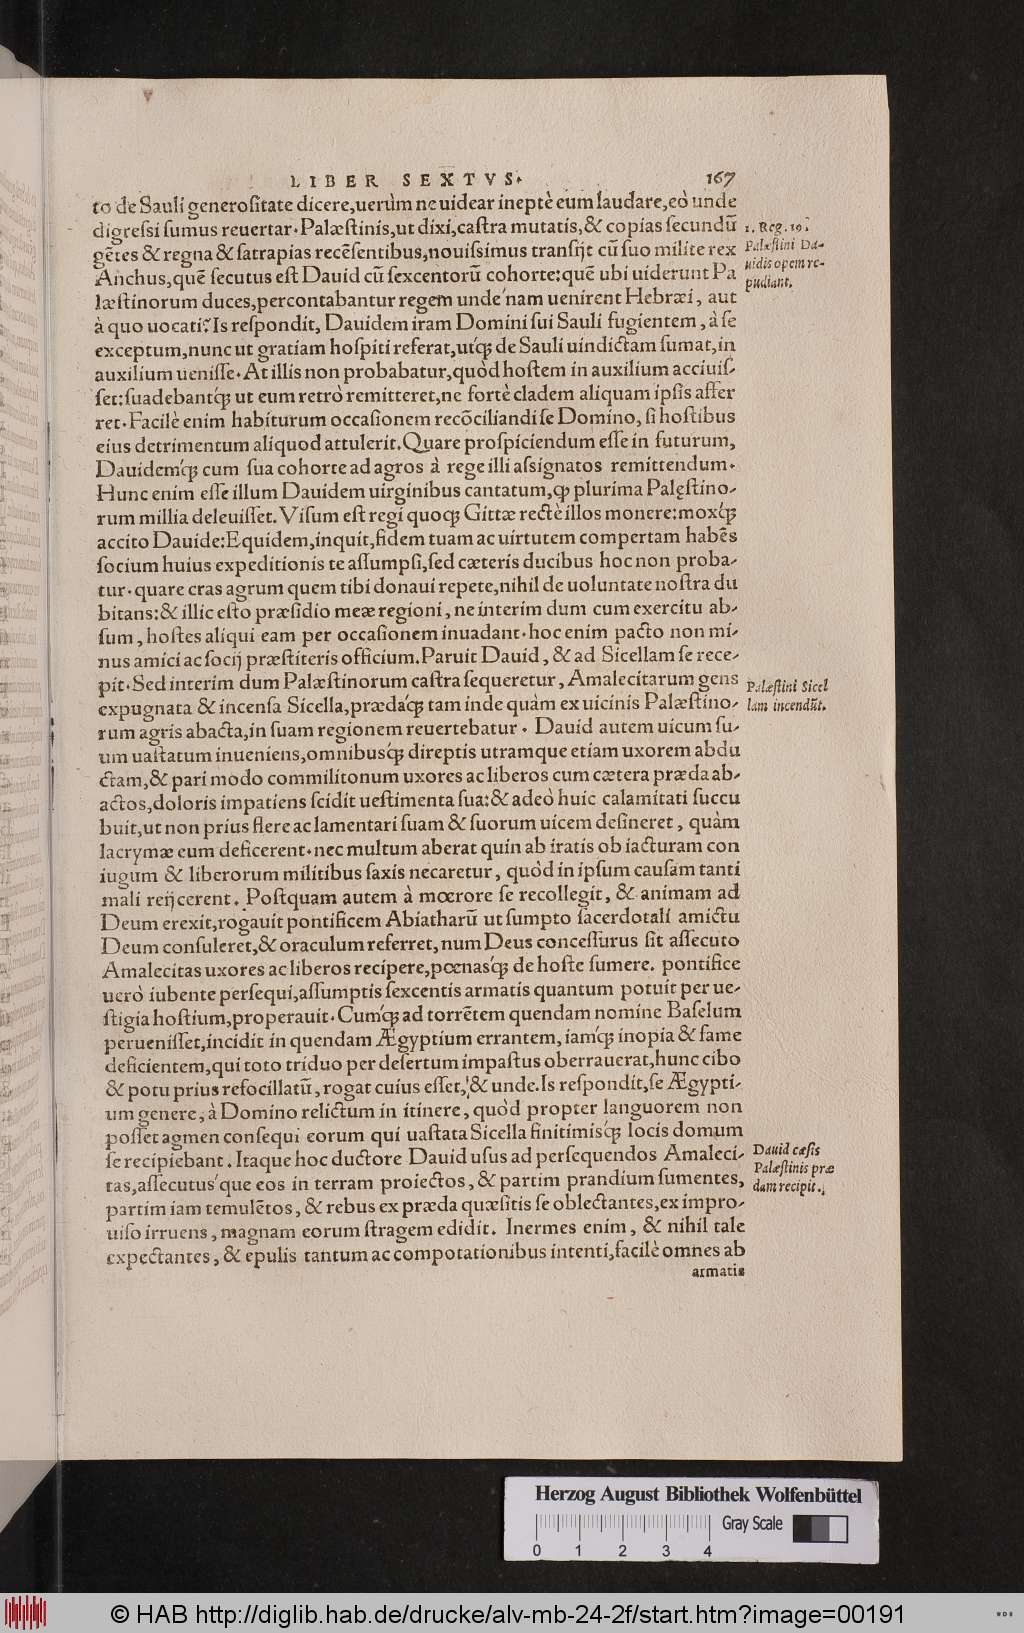 LIBER SEXTVS. 167
to de Sauli generoſitate dicere,uerùm ne uidear ineptè eum laudare,eò unde
digreſsi ſumus reuertar. Palæſtinis,ut dixi,caſtra mutatis,& copias ſecundũ
gẽtes & regna & ſatrapias recẽſentibus,nouiſsimus tranſijt cũ ſuo milite rex
Anchus,quẽ ſecutus eſt Dauid cũ ſexcentorũ cohorte:quẽ ubi uiderunt Pa
læſtinorum duces,percontabantur regem unde nam uenirent Hebræi, aut
à quo uocati? Is reſpondit, Dauidem iram Domini ſui Sauli fugientem, à ſe
exceptum,nunc ut gratiam hoſpiti referat,utq́; de Sauli uindictam ſumat,in
auxilium ueniſſe. At illis non probabatur,quòd hoſtem in auxilium acciuiſ-
ſet:ſuadebantq́; ut eum retrò remitteret,ne fortè cladem aliquam ipſis affer
ret. Facilè enim habiturum occaſionem recõciliandi ſe Domino, ſi hoſtibus
eius detrimentum aliquod attulerit. Quare proſpiciendum eſſe in futurum,
Dauidemq́; cum ſua cohorte ad agros à rege illi aſsignatos remittendum.
Hunc enim eſſe illum Dauidem uirginibus cantatum,ꝙ plurima Palęſtino-
rum millia deleuiſſet. Viſum eſt regi quoq; Gittæ rectè illos monere:moxq́;
accito Dauide:Equidem,inquit,fidem tuam ac uirtutem compertam habẽs
ſocium huius expeditionis te aſſumpſi,ſed cæteris ducibus hoc non proba-
tur. quare cras agrum quem tibi donaui repete,nihil de uoluntate noſtra du
bitans:& illic eſto præſidio meæ regioni, ne interim dum cum exercitu ab-
ſum, hoſtes aliqui eam per occaſionem inuadant. hoc enim pacto non mi-
nus amici ac ſocij præſtiteris officium. Paruit Dauid, & ad Sicellam ſe rece-
pit. Sed interim dum Palæſtinorum caſtra ſequeretur, Amalecitarum gens
expugnata & incenſa Sicella,prædaq́; tam inde quàm ex uicinis Palæſtino-
rum agris abacta,in ſuam regionem reuertebatur. Dauid autem uicum ſu-
um uaſtatum inueniens,omnibusq́; direptis utramque etiam uxorem abdu
ctam,& pari modo commilitonum uxores ac liberos cum cætera præda ab-
actos,doloris impatiens ſcidit ueſtimenta ſua:& adeò huic calamitati ſuccu
buit,ut non prius flere ac lamentari ſuam & ſuorum uicem deſineret, quàm
lacrymæ eum deficerent. nec multum aberat quin ab iratis ob iacturam con
iugum & liberorum militibus ſaxis necaretur, quòd in ipſum cauſam tanti
mali reijcerent. Poſtquam autem à mœrore ſe recollegit, & animam ad
Deum erexit,rogauit pontificem Abiatharũ ut ſumpto ſacerdotali amictu
Deum conſuleret,& oraculum referret, num Deus conceſſurus ſit aſſecuto
Amalecitas uxores ac liberos recipere,pœnasq́; de hoſte ſumere. pontifice
uerò iubente perſequi,aſſumptis ſexcentis armatis quantum potuit per ue-
ſtigia hoſtium,properauit. Cumq́; ad torrẽtem quendam nomine Baſelum
perueniſſet,incidit in quendam Ægyptium errantem, iamq́; inopia & fame
deficientem,qui toto triduo per deſertum impaſtus oberrauerat,hunc cibo
& potu prius refocillatũ, rogat cuius eſſet, & unde. Is reſpondit,ſe Ægypti-
um genere, à Domino relictum in itinere, quòd propter languorem non
poſſet agmen conſequi eorum qui uaſtata Sicella finitimisq́; locis domum
ſe recipiebant. Itaque hoc ductore Dauid uſus ad perſequendos Amaleci-
tas,aſſecutus que eos in terram proiectos, & partim prandium ſumentes,
partim iam temulẽtos, & rebus ex præda quæſitis ſe oblectantes,ex impro-
uiſo irruens, magnam eorum ſtragem edidit. Inermes enim, & nihil tale
expectantes, & epulis tantum ac compotationibus intenti,facilè omnes ab
armatis
1. Reg. 29.
Palæſtini Da-
uidis opem re-
pudiant.
Palæſtini Sicel
lam incendũt.
Dauid cæſis
Palæſtinis præ
dam recipit.
Herzog August Bibliothek Wolfenbüttel
Gray Scale
0 1 2 3 4
© HAB http://diglib.hab.de/drucke/alv-mb-24-2f/start.htm?image=00191